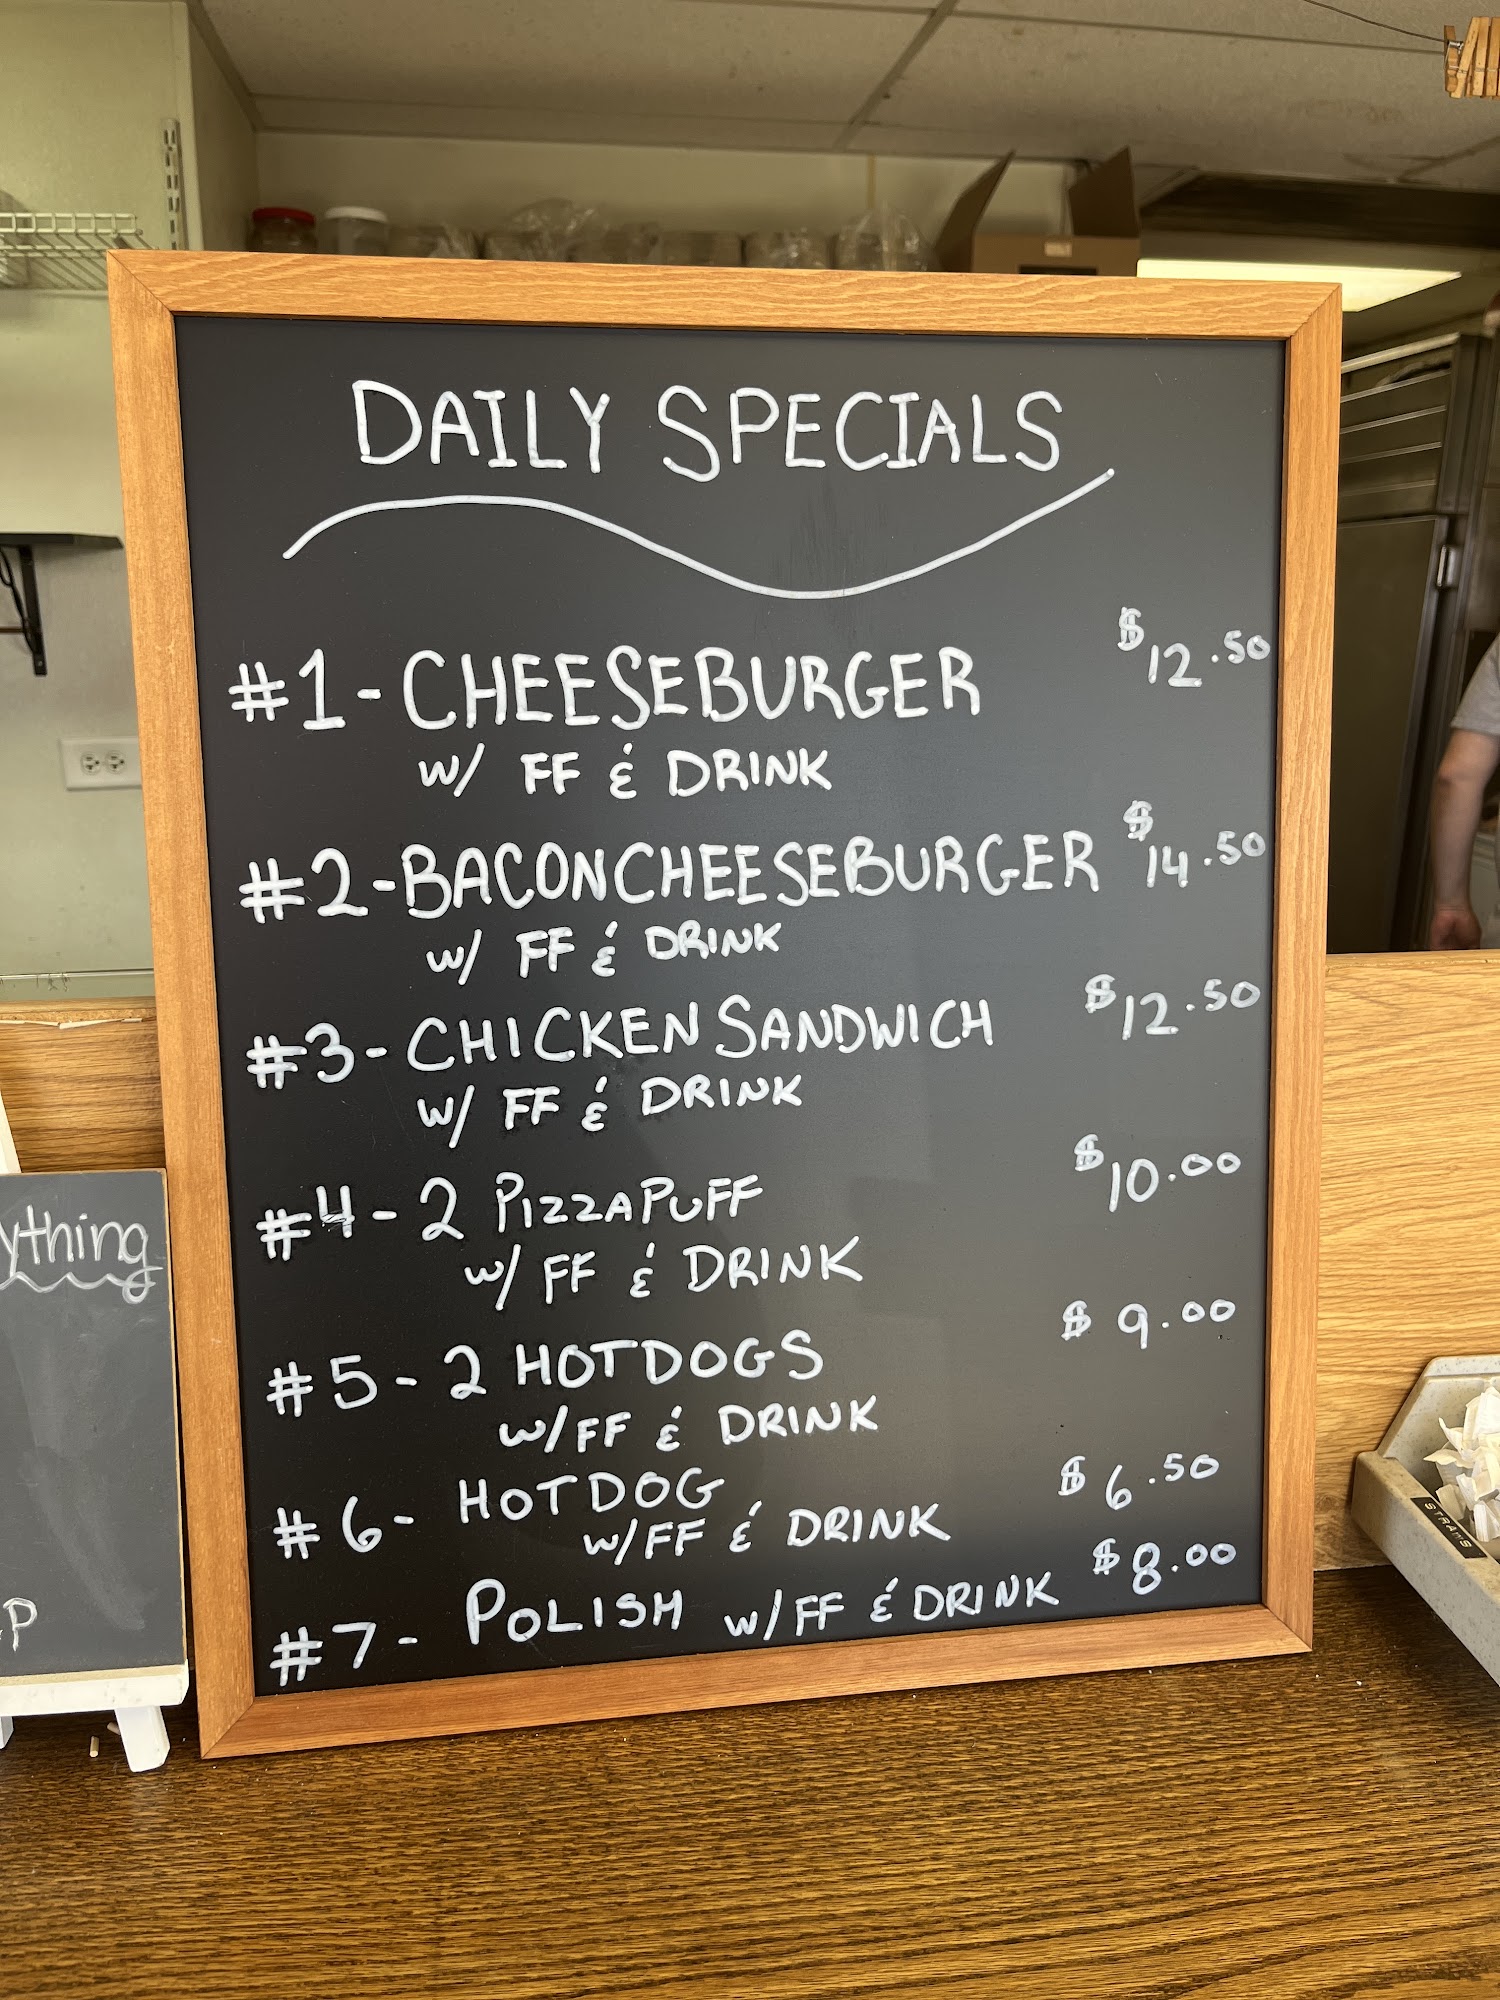 DAILY SPECIALS
#1 - CHEESEBURGER $12.50
w/ FF & DRINK
#2 - BACONCHEESEBURGER $14.50
w/ FF & DRINK
#3 - CHICKEN SANDWICH $12.50
w/ FF & DRINK
#4 - 2 PIZZA PUFF $10.00
w/ FF & DRINK
#5 - 2 HOTDOGS $9.00
w/ FF & DRINK
#6 - HOTDOG $6.50
w/ FF & DRINK
#7 - POLISH w/ FF & DRINK $8.00
ything
P
STRAWS